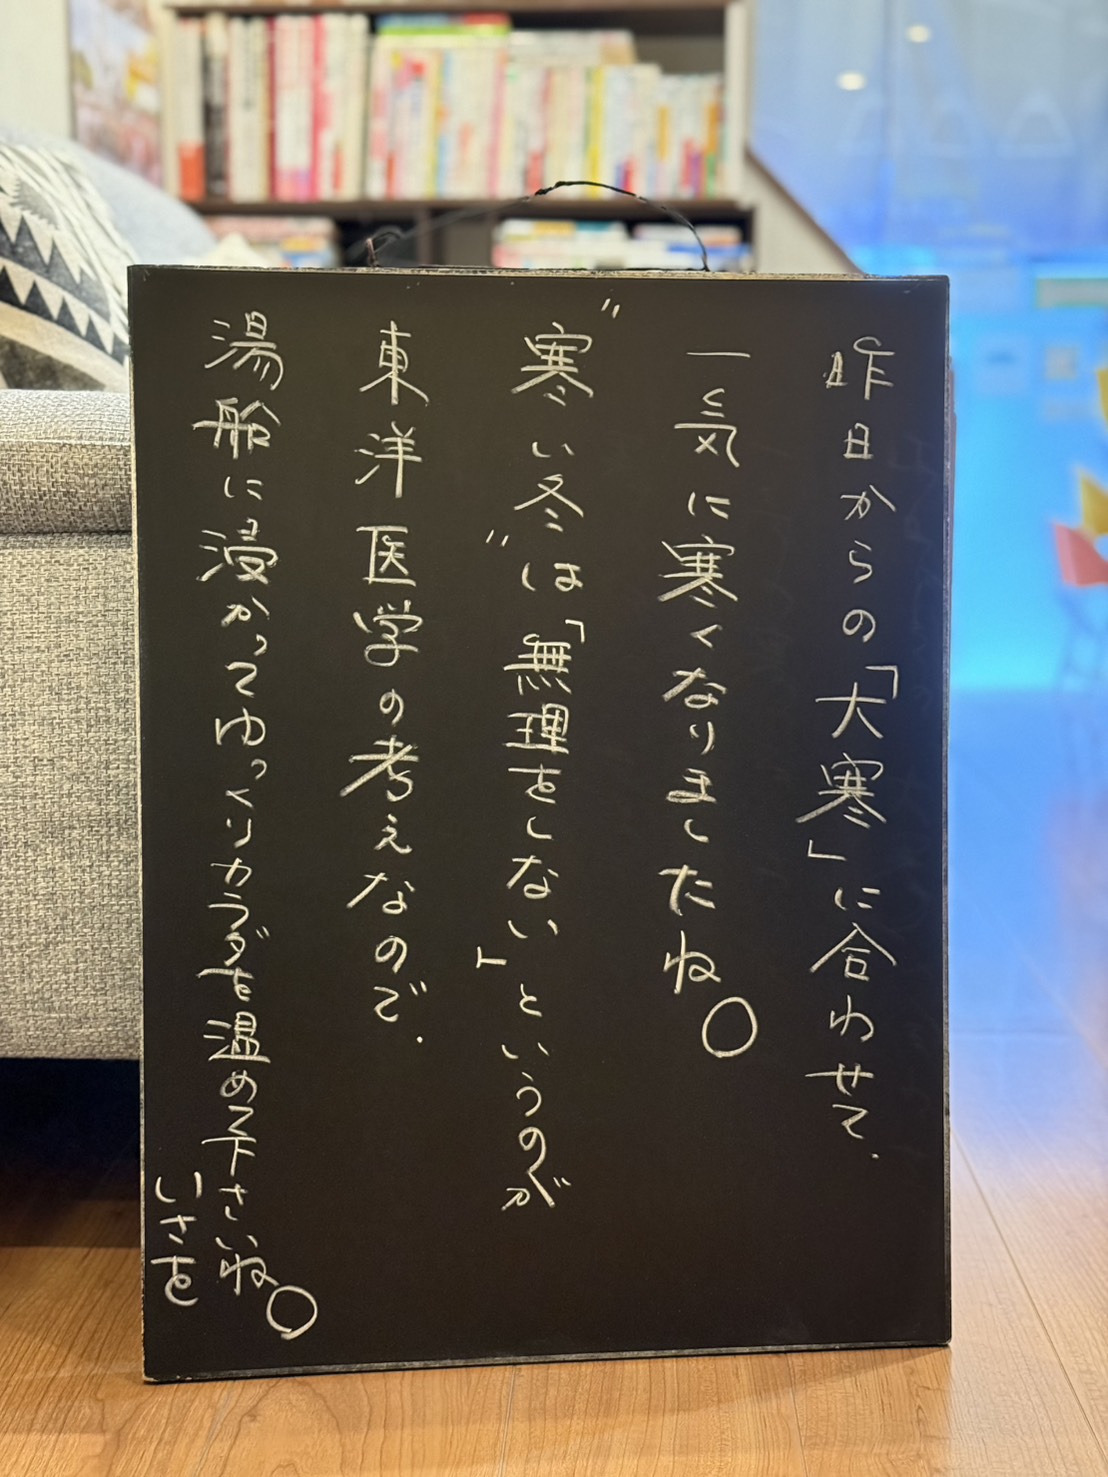 昨日からの「大寒」に合わせて、
一気に寒くなりましたね。
"寒い冬"は「無理をしない」というのが
東洋医学の考えなので、
湯船に浸かってゆっくりカラダを温めて下さいね。
いさを